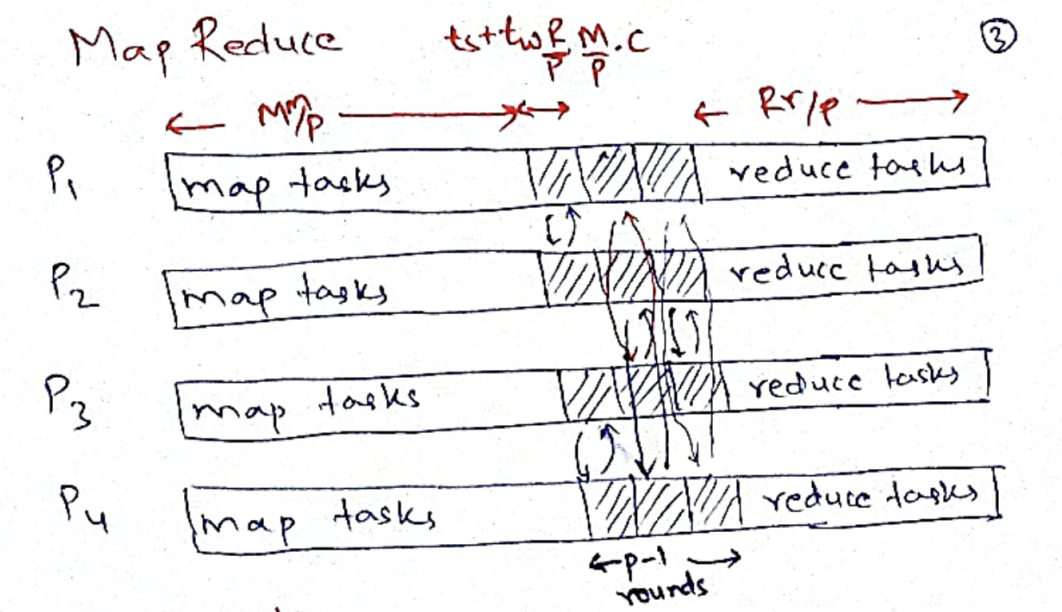 Map Reduce ts+tw R/P M/P . C ③
Mm/p Rr/p
P1 map tasks reduce tasks
P2 map tasks reduce tasks
P3 map tasks reduce tasks
P4 map tasks reduce tasks
p-1
rounds